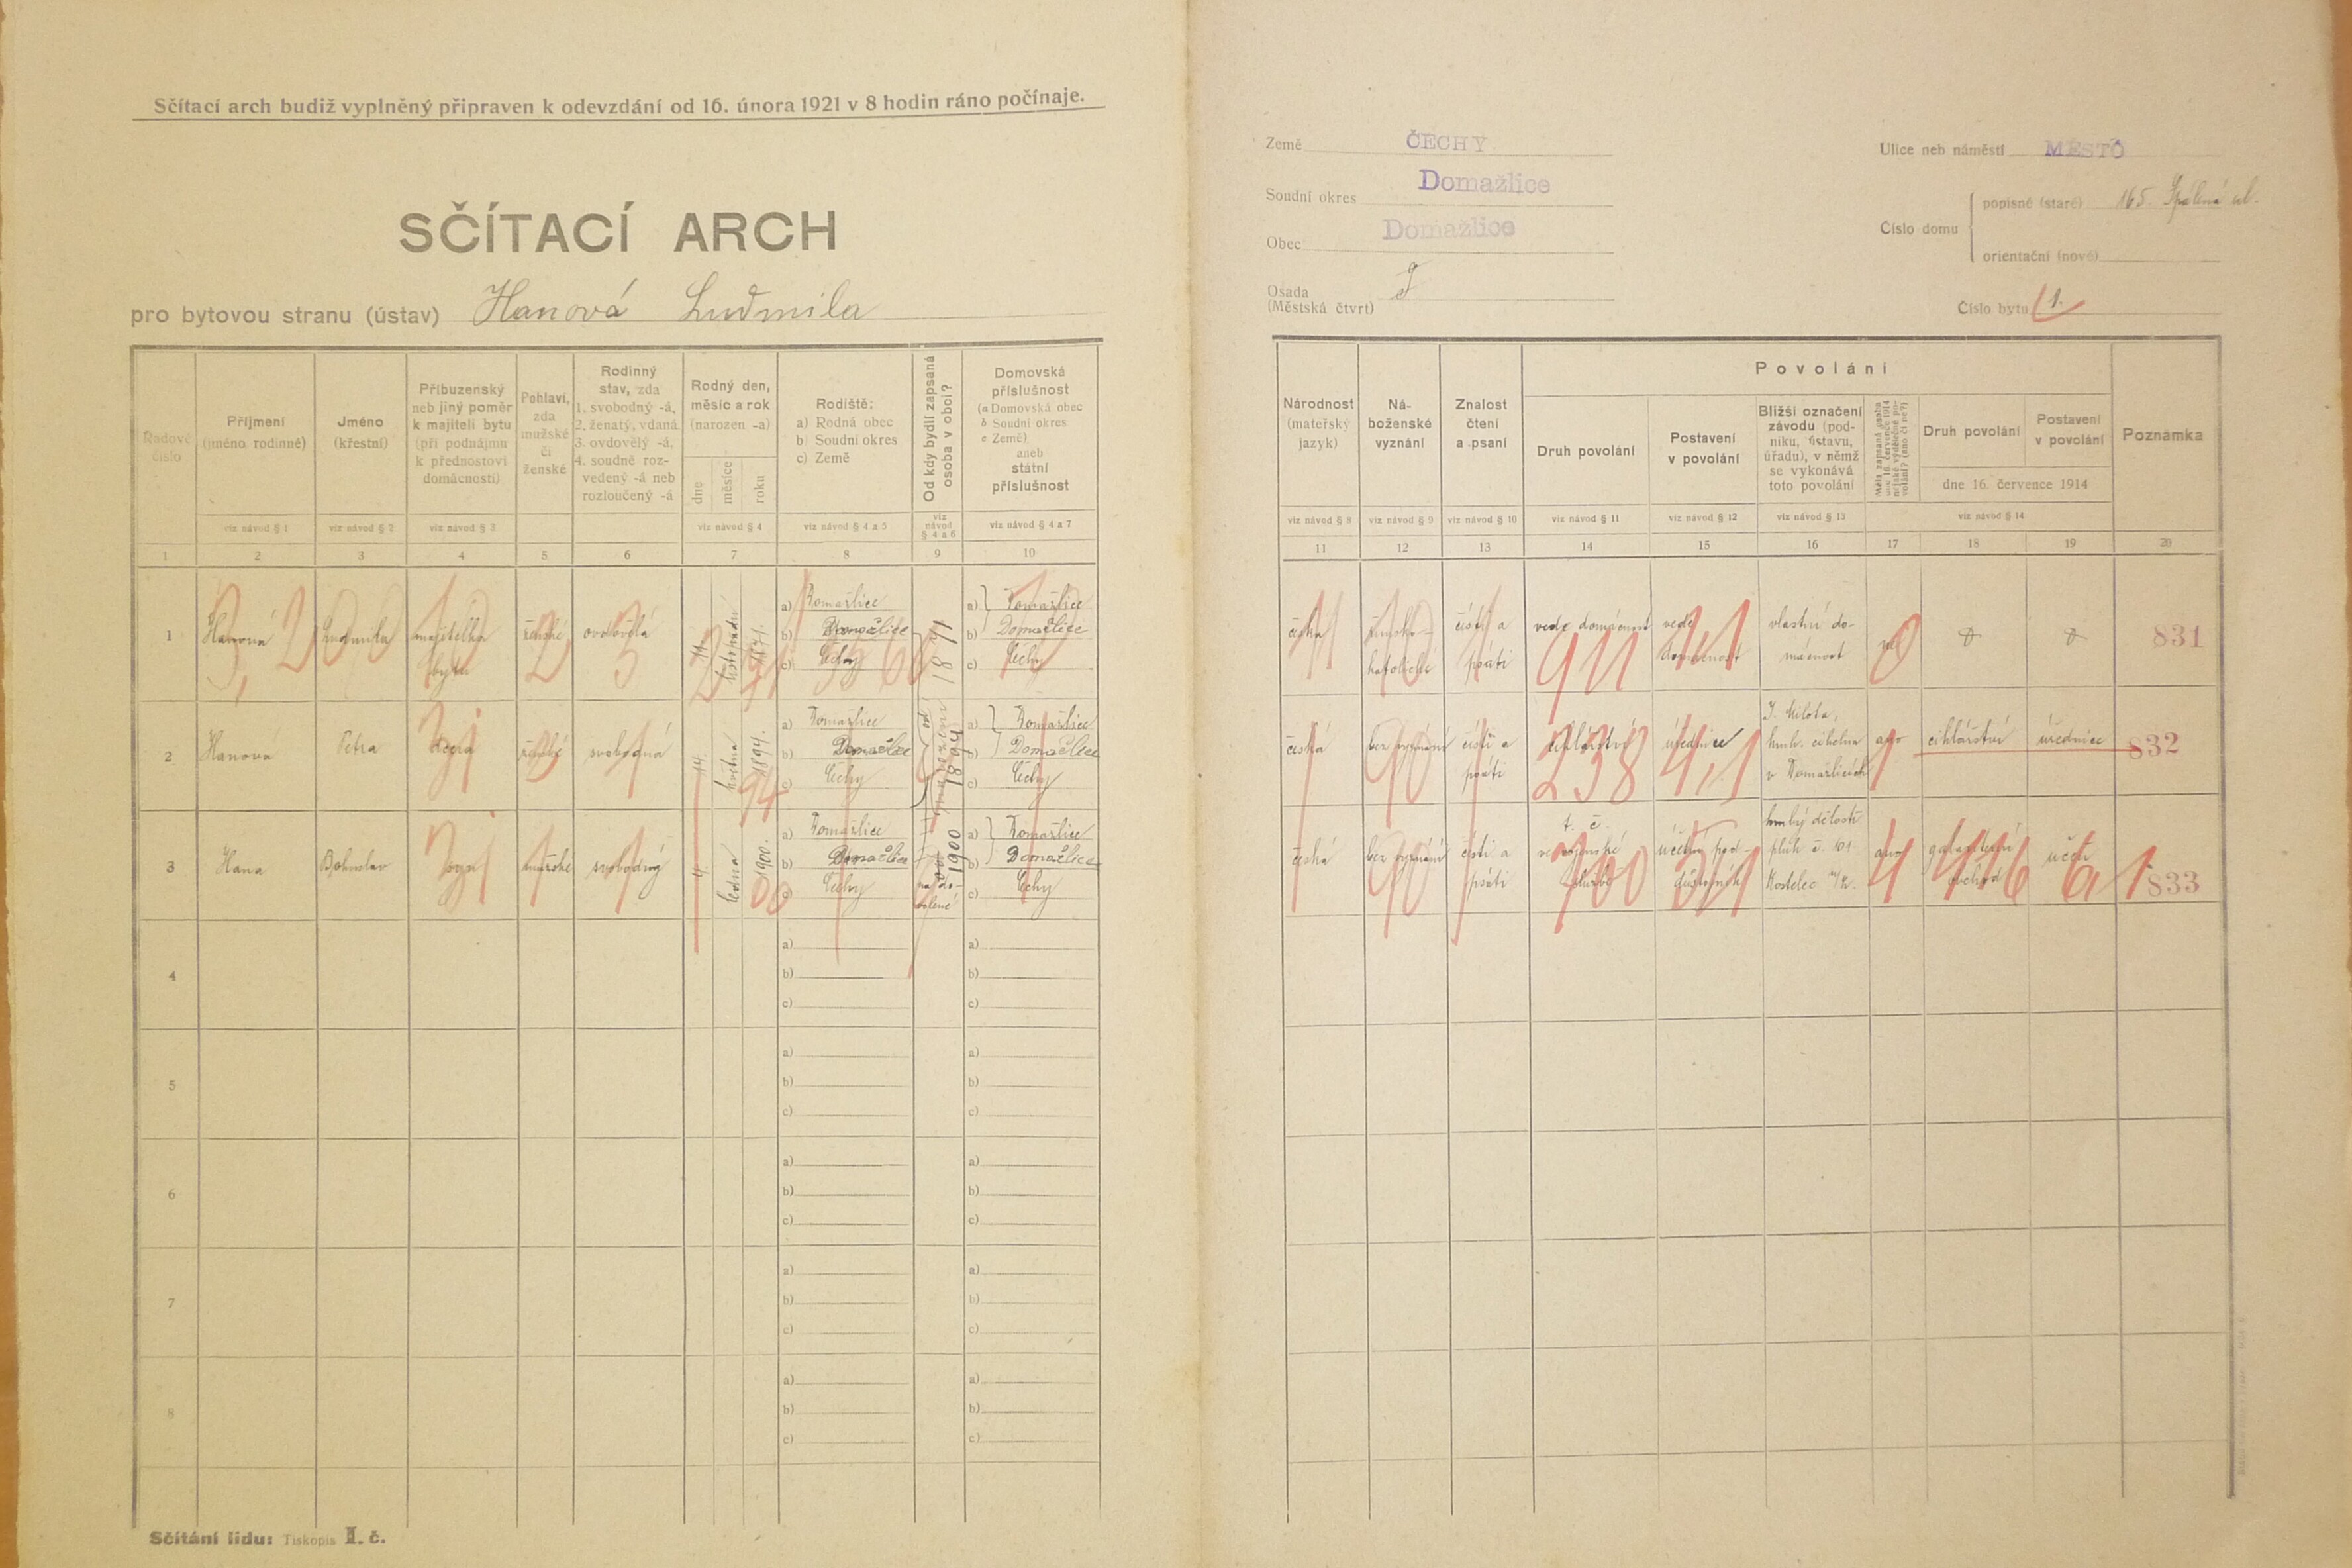 Sčítací arch budiž vyplněný připraven k odevzdání od 16. února 1921 v 8 hodin ráno počínaje.
SČÍTACÍ ARCH
pro bytovou stranu (ústav) Hanová Ludmila
Řadové číslo
Příjmení (jméno rodinné)
viz návod § 1
Jméno (křestní)
viz návod § 2
Příbuzenský neb jiný poměr k majiteli bytu (při podnájmu k přednostovi domácnosti)
viz návod § 3
Pohlaví, zda mužské či ženské
Rodinný stav, zda
1. svobodný -á,
2. ženatý, vdaná
3. ovdovělý -á,
4. soudně rozvedený -á neb rozloučený -á
Rodný den, měsíc a rok (narozen -a)
dne
měsíce
roku
viz návod § 4
Rodiště:
a) Rodná obec
b) Soudní okres
c) Země
viz návod § 4 a 5
Od kdy bydlí zapsaná osoba v obci?
viz návod § 4 a 6
Domovská příslušnost
(a Domovská obec
b Soudní okres
c Země)
aneb
státní příslušnost
viz návod § 4 a 7
1 2 3 4 5 6 7 8 9 10
1 Hanová Ludmila majitelka bytu ženské ovdovělá 11. listopadu 1871.
a) Domažlice
b) Domažlice
c) Čechy
1871
a) Domažlice
b) Domažlice
c) Čechy
2 Hanová Petra dcera ženské svobodná 14. května 1894.
a) Domažlice
b) Domažlice
c) Čechy
od narození 1894
a) Domažlice
b) Domažlice
c) Čechy
3 Hana Bohuslav syn mužské svobodný 4. ledna 1900.
a) Domažlice
b) Domažlice
c) Čechy
1900
a) Domažlice
b) Domažlice
c) Čechy
4
a) a)
b) b)
c) c)
5
a) a)
b) b)
c) c)
6
a) a)
b) b)
c) c)
7
a) a)
b) b)
c) c)
8
a) a)
b) b)
c) c)
Sčítání lidu: Tiskopis II. č.
Země ČECHY
Soudní okres Domažlice
Obec Domažlice
Osada (Městská čtvrť)
Ulice neb náměstí MĚSTO
Číslo domu
popisné (staré) 165. Spálená ul.
orientační (nové)
Číslo bytu 1.
Národnost (mateřský jazyk)
viz návod § 8
Náboženské vyznání
viz návod § 9
Znalost čtení a psaní
viz návod § 10
Povolání
Druh povolání
viz návod § 11
Postavení v povolání
viz návod § 12
Bližší označení závodu (podniku, ústavu, úřadu), v němž se vykonává toto povolání
viz návod § 13
Měla zapsaná osoba dne 16. července 1914 nějaké výdělečné povolání? (ano či ne?)
Druh povolání
Postavení v povolání
dne 16. července 1914
viz návod § 14
Poznámka
11 12 13 14 15 16 17 18 19 20
česká římsko-katolické čísti a psáti vede domácnost vede domácnost vlastní domácnost ne 831
česká bez vyznání čísti a psáti cihlářství úřednice
kruh. cihelna
v Domažlicích
ano cihlářství úřednice 832
česká bez vyznání čísti a psáti
t. č.
ve vojenské službě
poddůstojník
pluk č. 101
Kostelec
ano obchod učeň 833